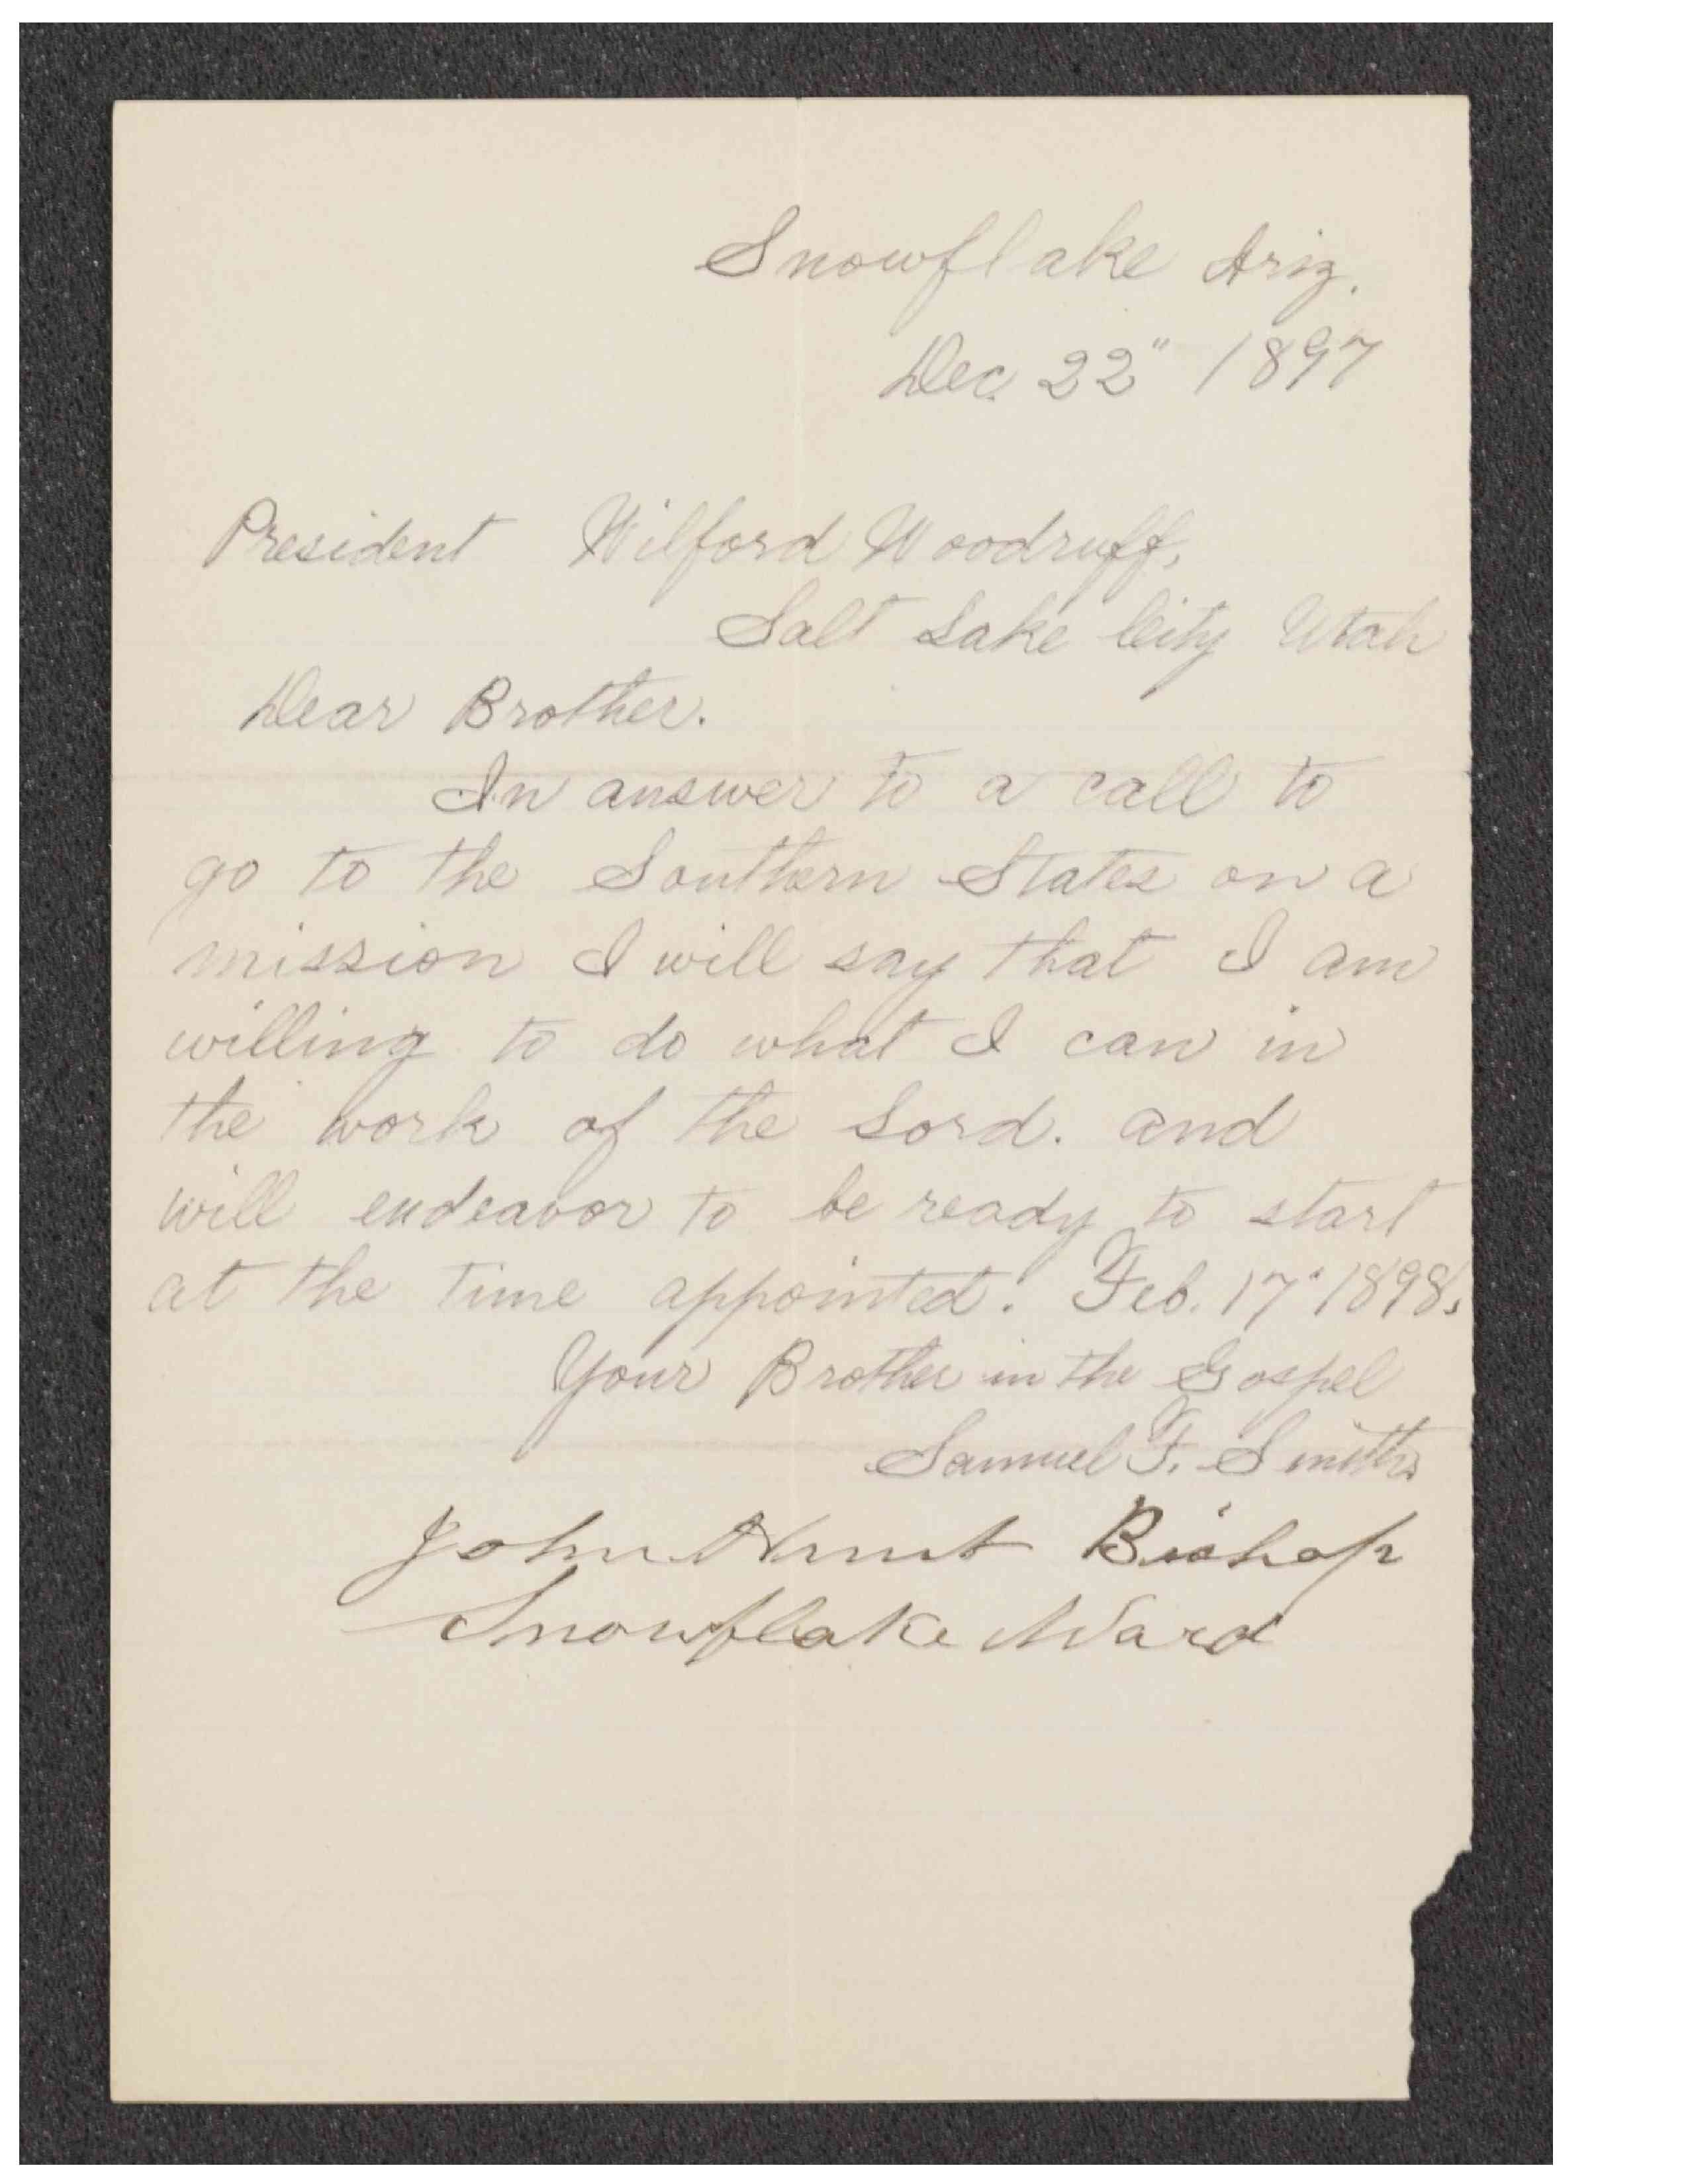 Snowflake Ariz.
Dec. 22" 1897
President Wilford Woodruff,
Salt Lake City Utah
Dear Brother.
In answer to a call to
go to the Southern States on a
mission I will say that I am
willing to do what I can in
the work of the Lord. and
will endeavor to be ready to start
at the time appointed. Feb. 17" 1898.
Your Brother in the Gospel
Samuel F. Smith
John Hunt Bishop
Snowflake Ward